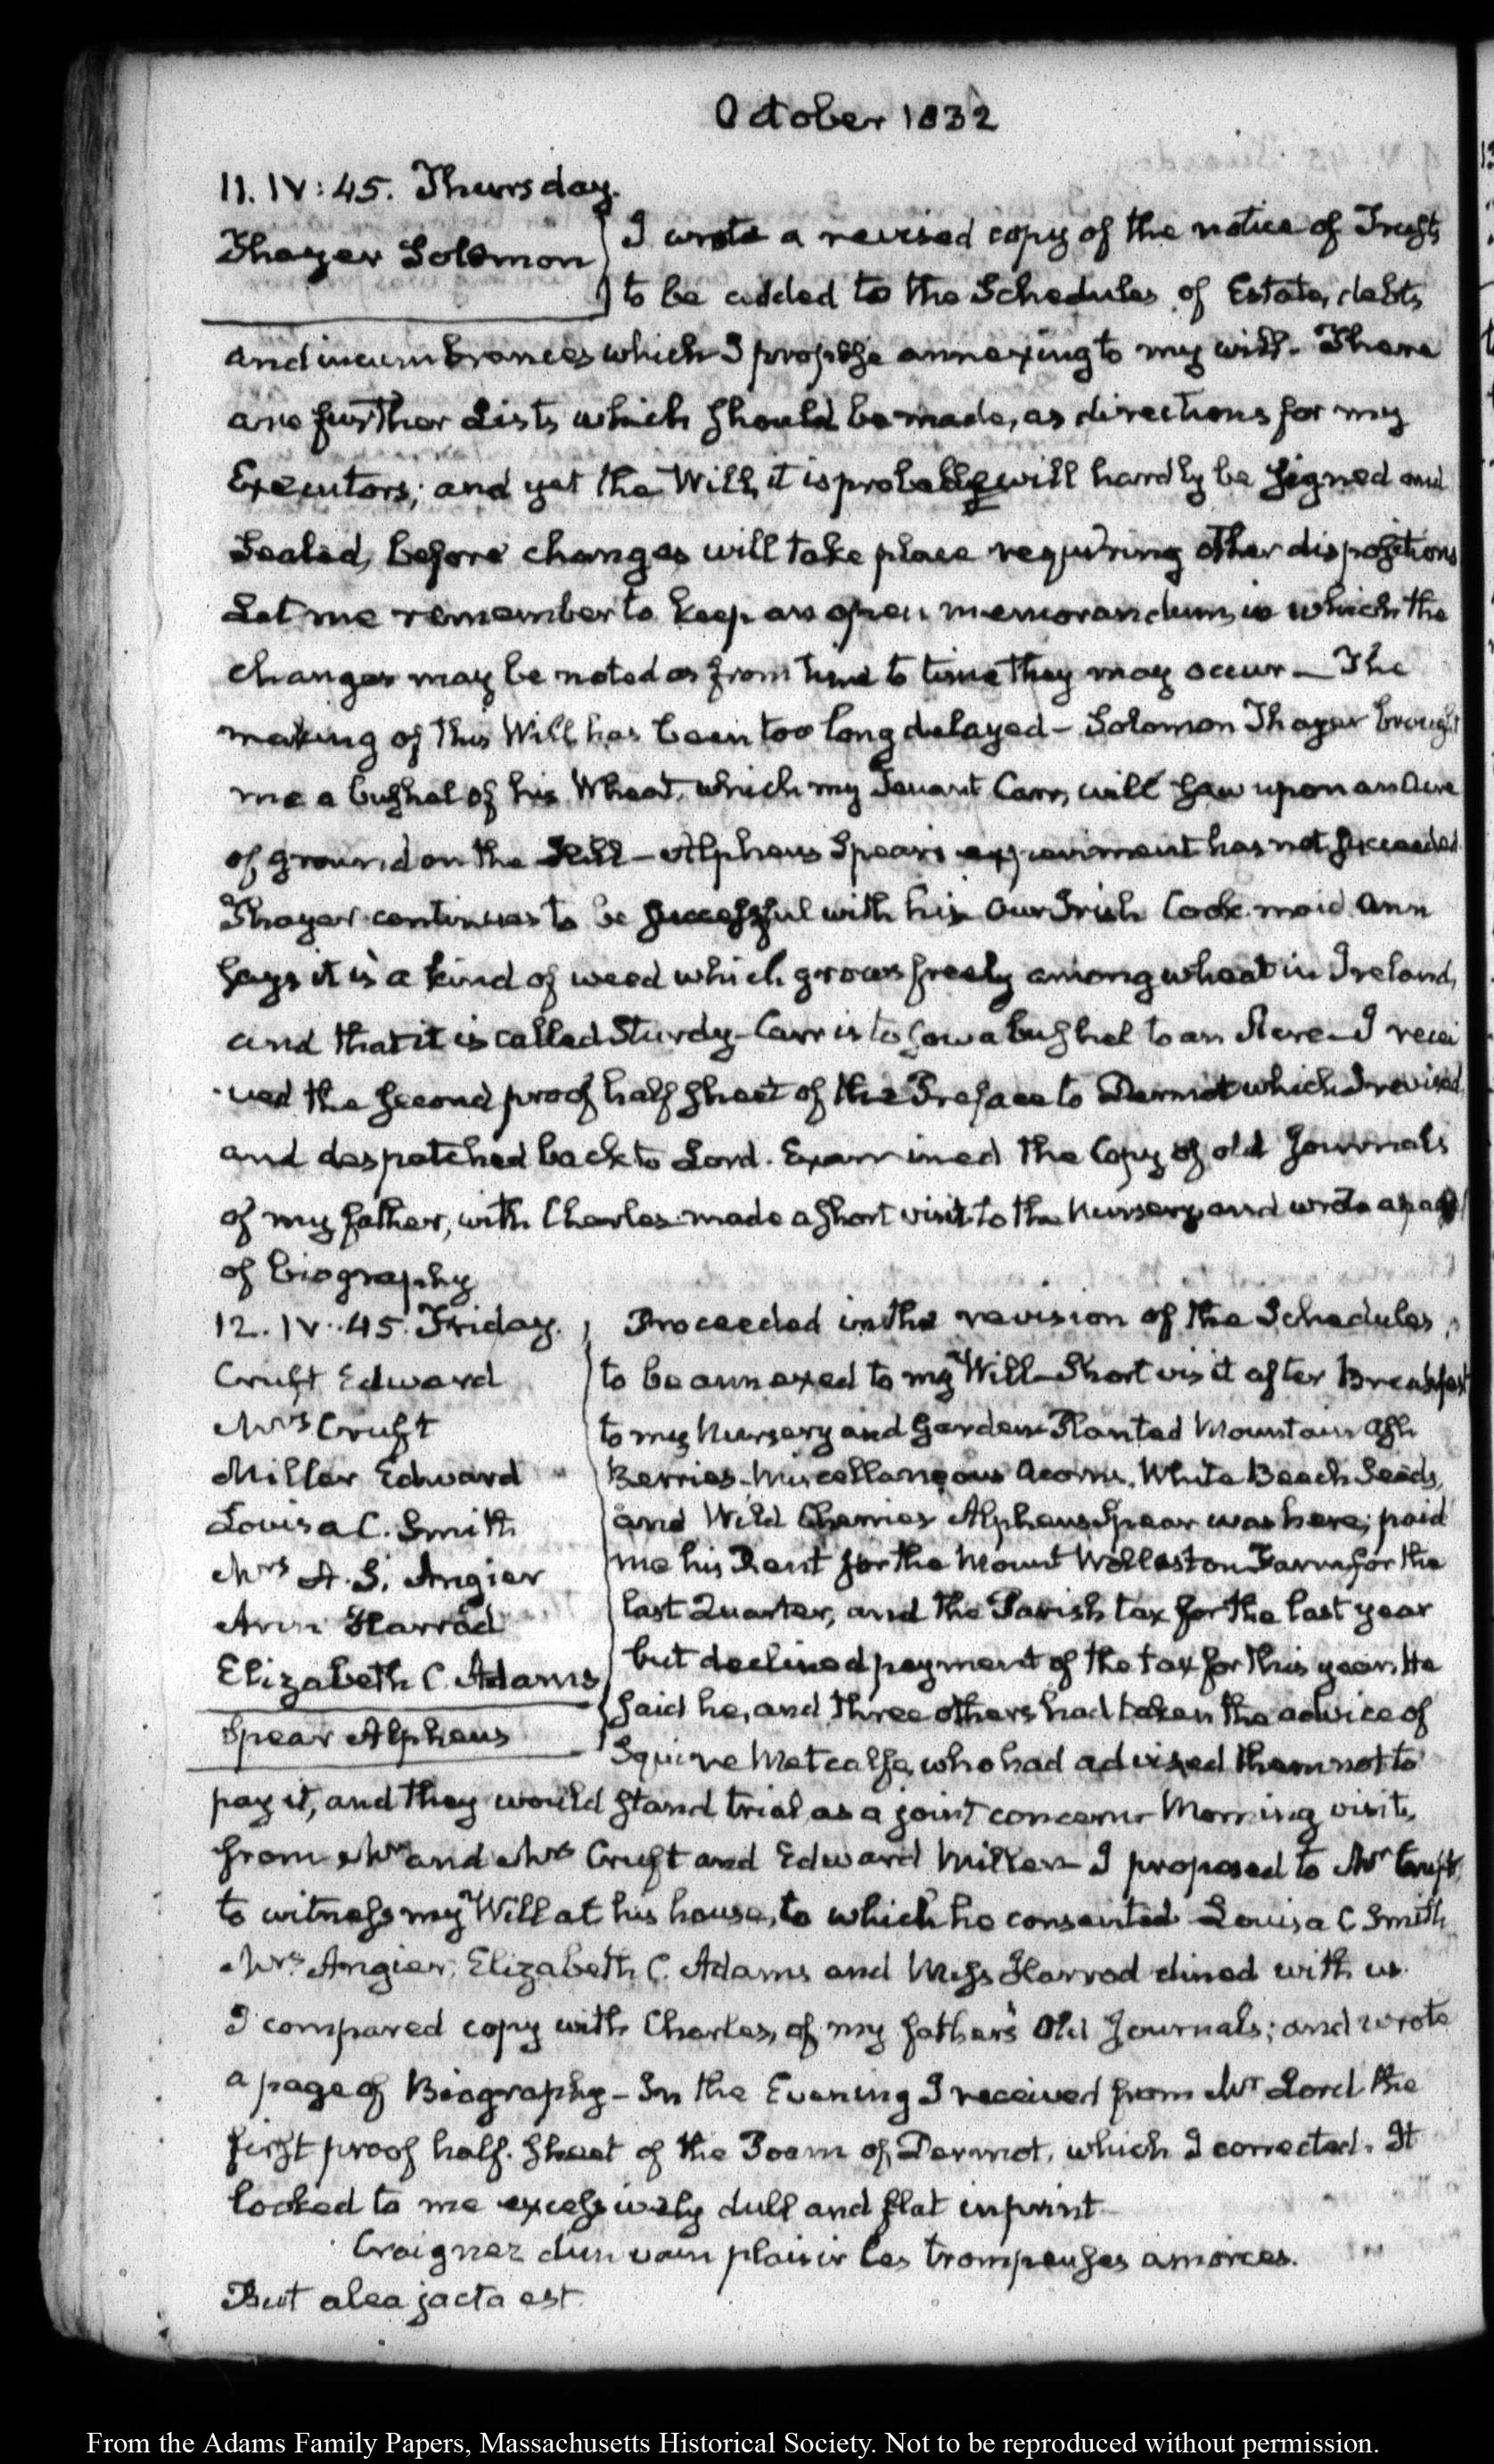 October 1832
11. IV: 45. Thursday.
Thayer Solomon
I wrote a revised copy of the notice of Trusts
to be added to the Schedules of Estate, debts
and incumbrances which I propose annexing to my will. There
are further Lists which should be made, as directions for my
Executors; and yet the Will, it is probable will hardly be signed and
Sealed, before changes will take place requiring other dispositions
Let me remember to keep an open memorandum, in which the
changes may be noted as from time to time they may occur – The
making of this Will, has been too long delayed – Solomon Thayer brought
me a bushel of his Wheat, which my Tenant Carr, will sow upon an Acre
of ground on the Hill – Alpheus Spear's experiment has not succeeded.
Thayer continues to be successful with his. Our Irish Cook maid Ann
says it is a kind of weed which grows freely among wheat in Ireland,
and that it is called Sturdy – Carr is to sow a bushel to an Acre – I recei
ved the second proof half sheet of the Preface to Dermot which I revised
and despatched back to Lord. Examined the Copy of old Journals
of my father, with Charles – made a short visit to the Nursery and wrote a page
of biography
12. IV. 45. Friday.
Cruft Edward
Mrs Cruft
Miller Edward
Louisa C. Smith
Mrs A. S. Angier
Ann Harrod
Elizabeth C. Adams
Spear Alpheus
Proceeded in the revision of the Schedules,
to be annexed to my Will – Short visit after Breakfast
to my Nursery and Garden – Planted Mountain Ash
Berries – Miscellaneous Acorns, White Beech Seeds,
and Wild Cherries Alpheus Spear was here; paid
me his Rent for the Mount Wollaston Farm for the
last Quarter, and the Parish tax for the last year
but declined payment of the tax for this year. He
said he, and three others had taken the advice of
Squire Metcalfe, who had advised them not to
pay it, and they would stand trial as a joint concern – Morning visits
from Mr and Mrs Cruft and Edward Miller – I proposed to Mr Cruft,
to witness my Will at his house, to which he consented – Louisa C Smith
Mrs Angier, Elizabeth C. Adams and Miss Harrod dined with us.
I compared copy with Charles, of my father's Old Journals; and wrote
a page of Biography – In the Evening I received from Mr Lord the
first proof half-sheet of the Poem of Dermot, which I corrected. It
looked to me excessively dull and flat in print –
Craignez d'un vain plaisir les trompeuses amorces.
But alea jacta est.
From the Adams Family Papers, Massachusetts Historical Society. Not to be reproduced without permission.